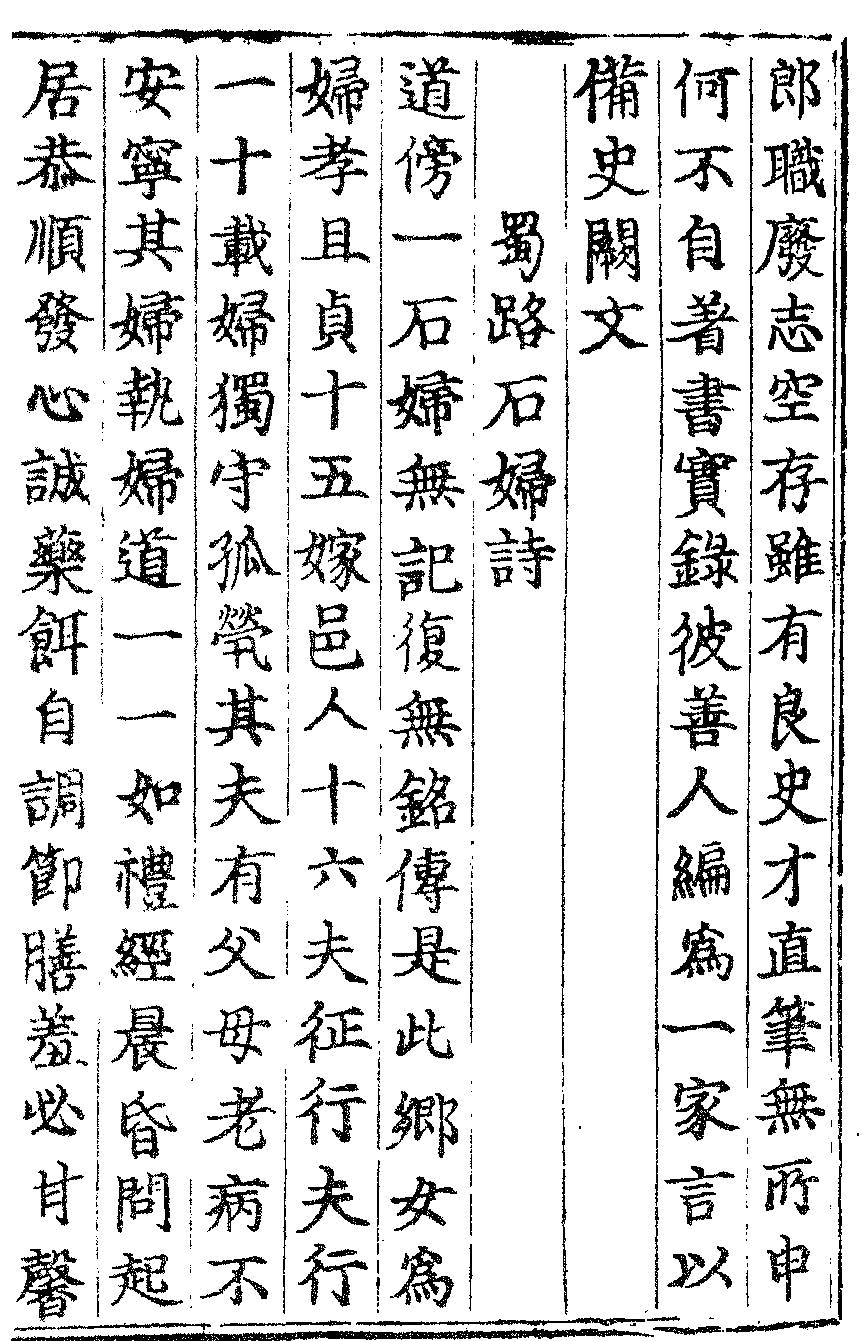 郎職廢志空存雖有良史才直筆無所申
何不自著書實錄彼善人編爲一家言以
備史闕文
蜀路石婦詩
道傍一石婦無記復無銘傳是此鄉女爲
婦孝且貞十五嫁邑人十六夫征行夫行
一十載婦獨守孤煢其夫有父母老病不
安寧其婦執婦道一一如禮經晨昏問起
居恭順發心誠藥餌自調節膳羞必甘馨